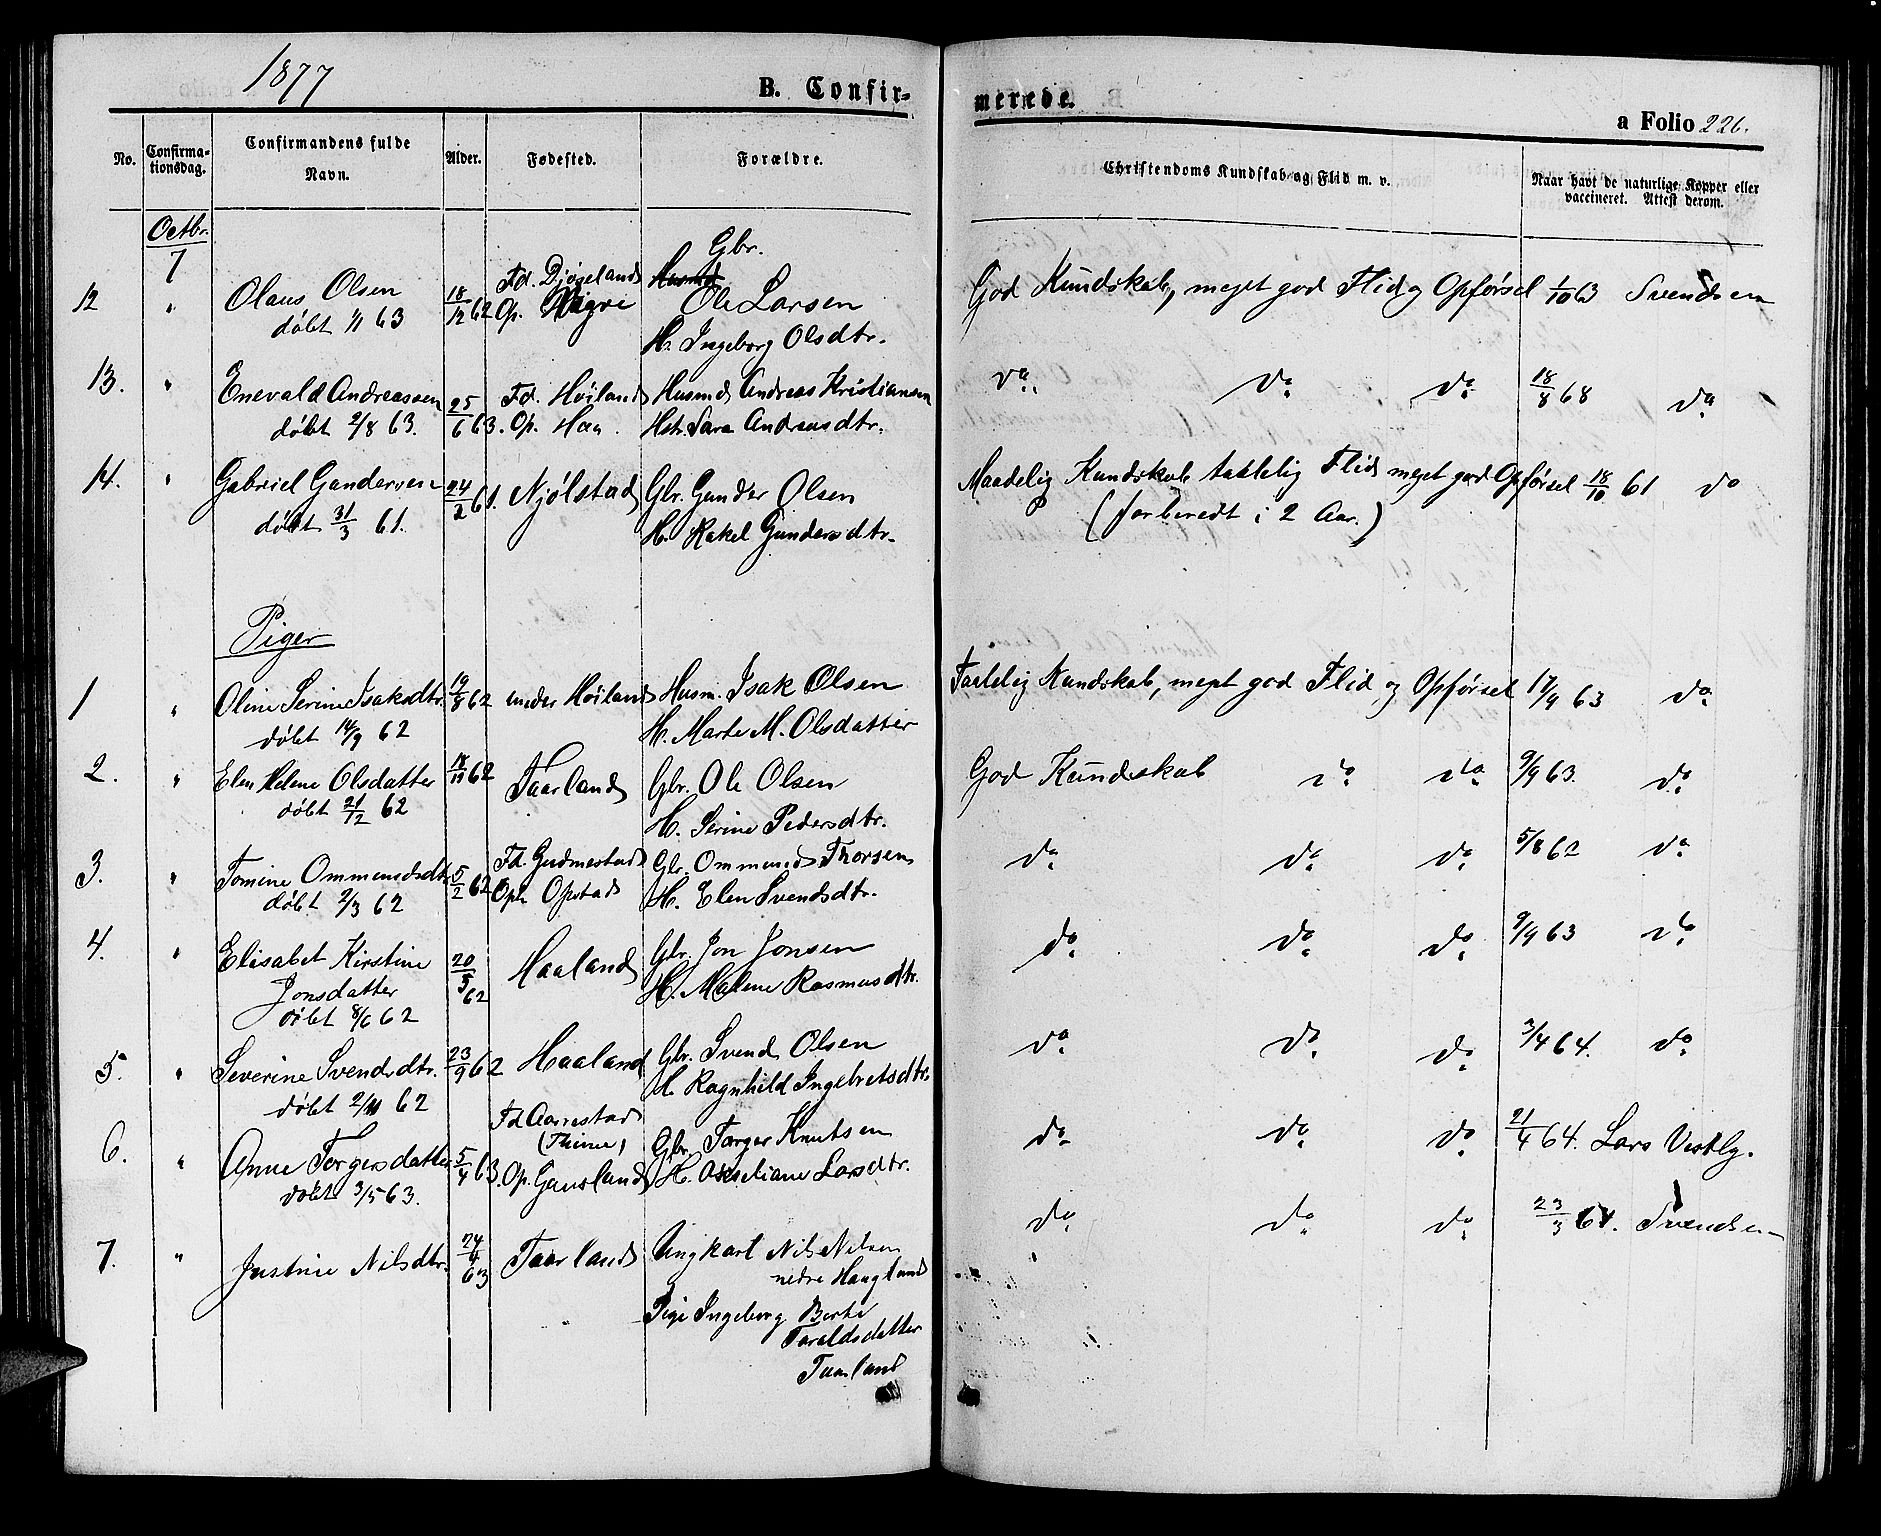 1877
B. Confir-
merede.
a Folio 226.
No.
Confirma-
tionsdag.
Confirmandens fulde
Navn.
Alder.
Fødested.
Forældre.
Christendoms Kundskab og Flid m. v.
Naar havt de naturlige Kopper eller
vaccineret. Attest derom.
Octbr.
7
12 " Olaus Olsen 18/12 62 Fd. Gbr.
døbt 1/1 63 Op. Ole Larsen
H. Ingeborg Olsdtr.
God Kundskab, meget god Flid og Opførsel 1/10 63 Svendsen
13. " Enevald Andreassen 25/6 63. Fd. Høiland Husmd Andreas Kristiansen
døbt 2/8 63. Op. Haa. Hstr. Sara Andreasdtr.
do. do. do. 18/8 68 do
14. " Gabriel Gundersen 24/2 61. Njølstad Gbr. Gunder Olsen
døbt 31/3 61. H. Rakel Gundersdtr.
Maadelig Kundskab taalelig Flid meget god Opførsel 18/10 61 do
(forberedt i 2 Aar.)
Piger
1 " Oline Serine Isaksdtr. 19/8 62 under Høiland Husm. Isak Olsen
døbt 14/9 62 H. Marte M. Olsdatter
Taalelig Kundskab, meget god Flid og Opførsel 17/9 63 do.
2. " Elen Helene Olsdatter 18/11 62 Taarland Gbr. Ole Olsen
døbt 21/12 62 H. Serine Pedersdtr.
God Kundskab do. do. 9/9 63. do.
3. " Tomine Ommundsdtr 5/2 62 Fd. Gudmestad Gbr. Ommund Thorsen
døbt 2/3 62 Oph Opstad H. Elen Svendsdtr.
do. do. do. 5/8 62 do.
4. " Elisabet Kirstine 20/5 62 Haaland Gbr. Jon Jonsen
Jonsdatter H. Malene Rasmusdtr.
døbt 8/6 62
do. do. do. 9/9 63 do.
5. " Severine Svendsdtr. 23/9 62 Haaland Gbr. Svend Olsen
døbt 2/11 62 H. Ragnhild Ingebretsdtr.
do. do. do. 3/4 64. do.
6. " Anne Torgersdatter 5/4 63. Fd Aarrestad
(Thime) Gbr. Torger Knutsen
døbt 3/5 63. Op. Gausland H. Akseliane Larsdtr.
do. do. do. 21/4 64. Lars Vestly.
7. " Justine Nilsdtr. 24/6 63 Taarland Ungkarl Nils Nilsen
nedre Haugland
Pige Ingeborg Berte
Taraldsdatter
Taarland
do. do. do. 23/3 64. Svendsen